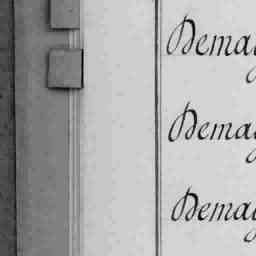 Demay
Demay
Demay